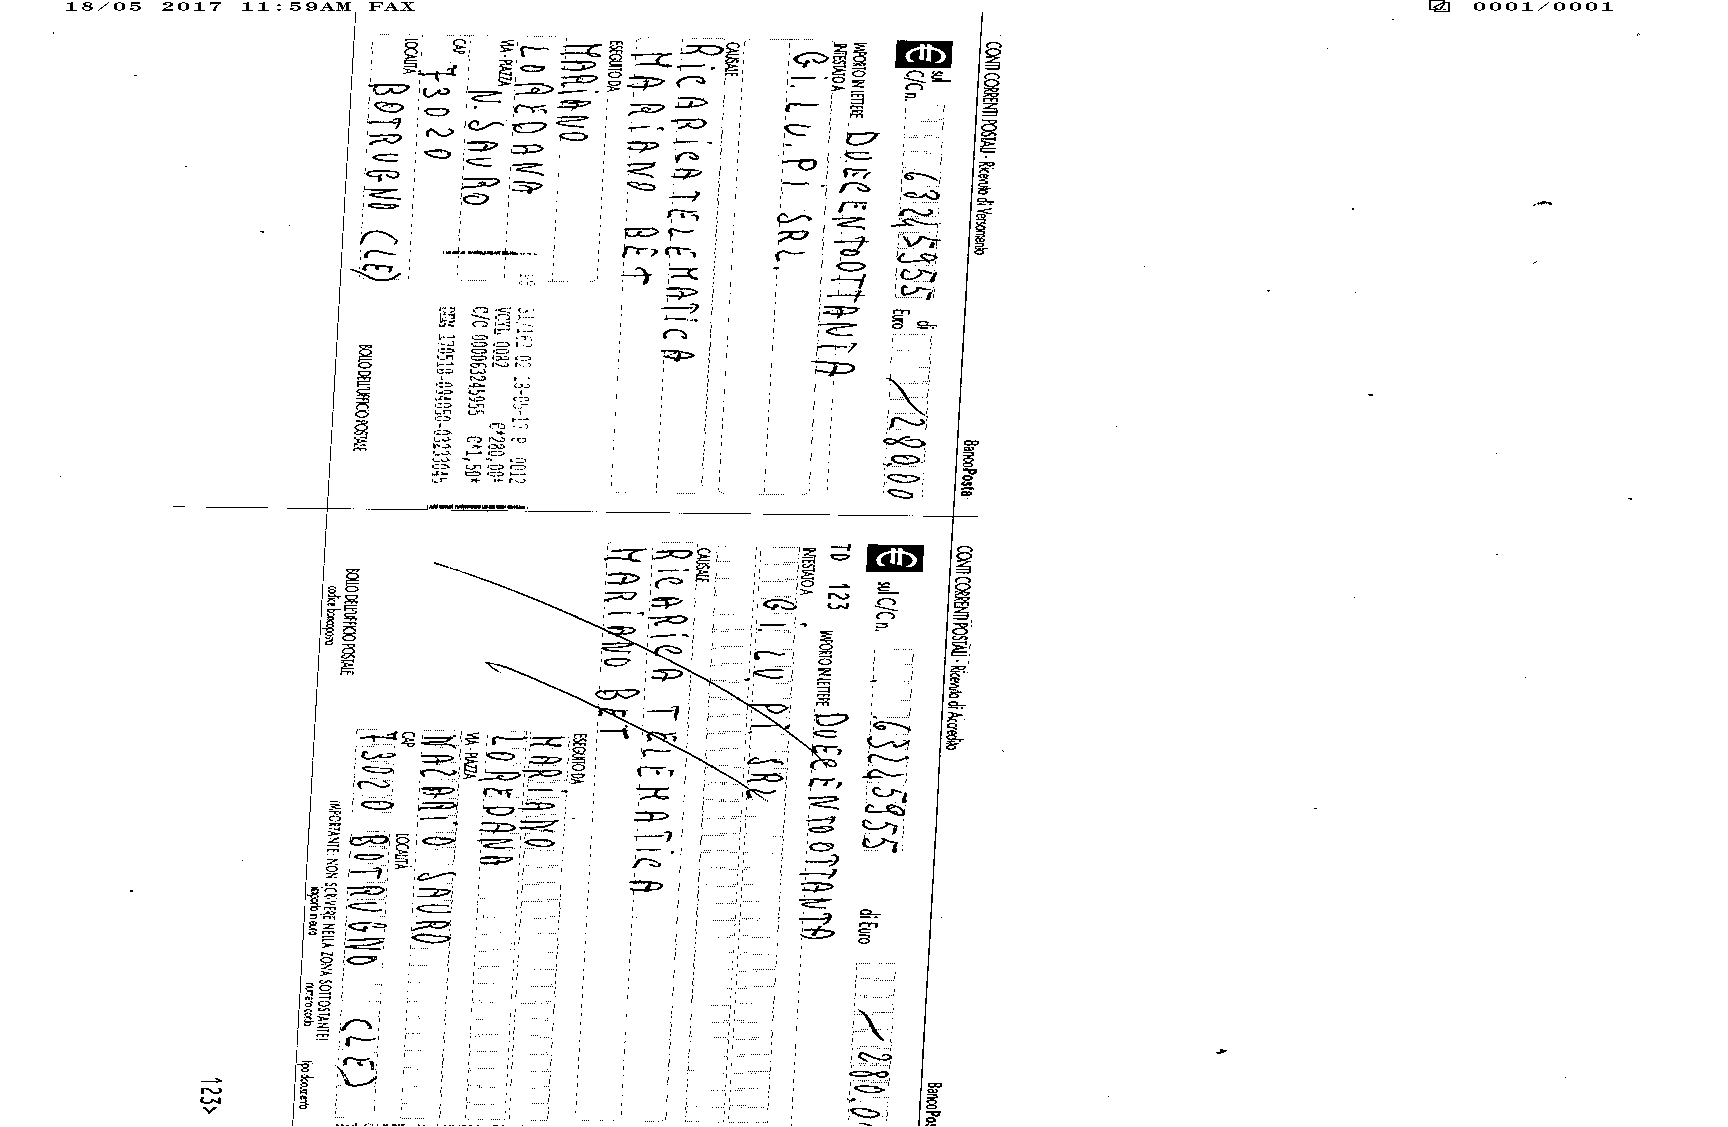 18/05 2017 11:59AM FAX
0001/0001
CONTI CORRENTI POSTALI - Ricevuta di Versamento
BancoPosta
€ sul C/C n. 63245955 di Euro 280,00
IMPORTO IN LETTERE DUECENTOOTTANTA
INTESTATO A
Gi. Lu. Pi SRL.
CAUSALE
RiCARiCA TELEMATiCA
MARiANO BET
ESEGUITO DA
MARiANO
LOREDANA
VIA - PIAZZA N. SAURO
CAP 73020
LOCALITÀ BOTRUGNO (LE)
VCYL 0082 €*280,00*
C/C 000063245955 €*1,50*
BOLLO DELL'UFFICIO POSTALE
CONTI CORRENTI POSTALI - Ricevuta di Accredito
€ sul C/C n. 63245955 di Euro
TD 123 IMPORTO IN LETTERE DUECENTOOTTANTA
INTESTATO A
Gi. LU. Pi SRL
CAUSALE
RiCARiCA TELEMATiCA
MARiANO BET
ESEGUITO DA
MARiANO
LOREDANA
VIA - PIAZZA
NAZARiO SAURO
CAP LOCALITÀ
73020 BOTRUGNO (LE)
BOLLO DELL'UFFICIO POSTALE
codice bancoposta
IMPORTANTE: NON SCRIVERE NELLA ZONA SOTTOSTANTE!
importo in euro numero conto tipo documento
123>